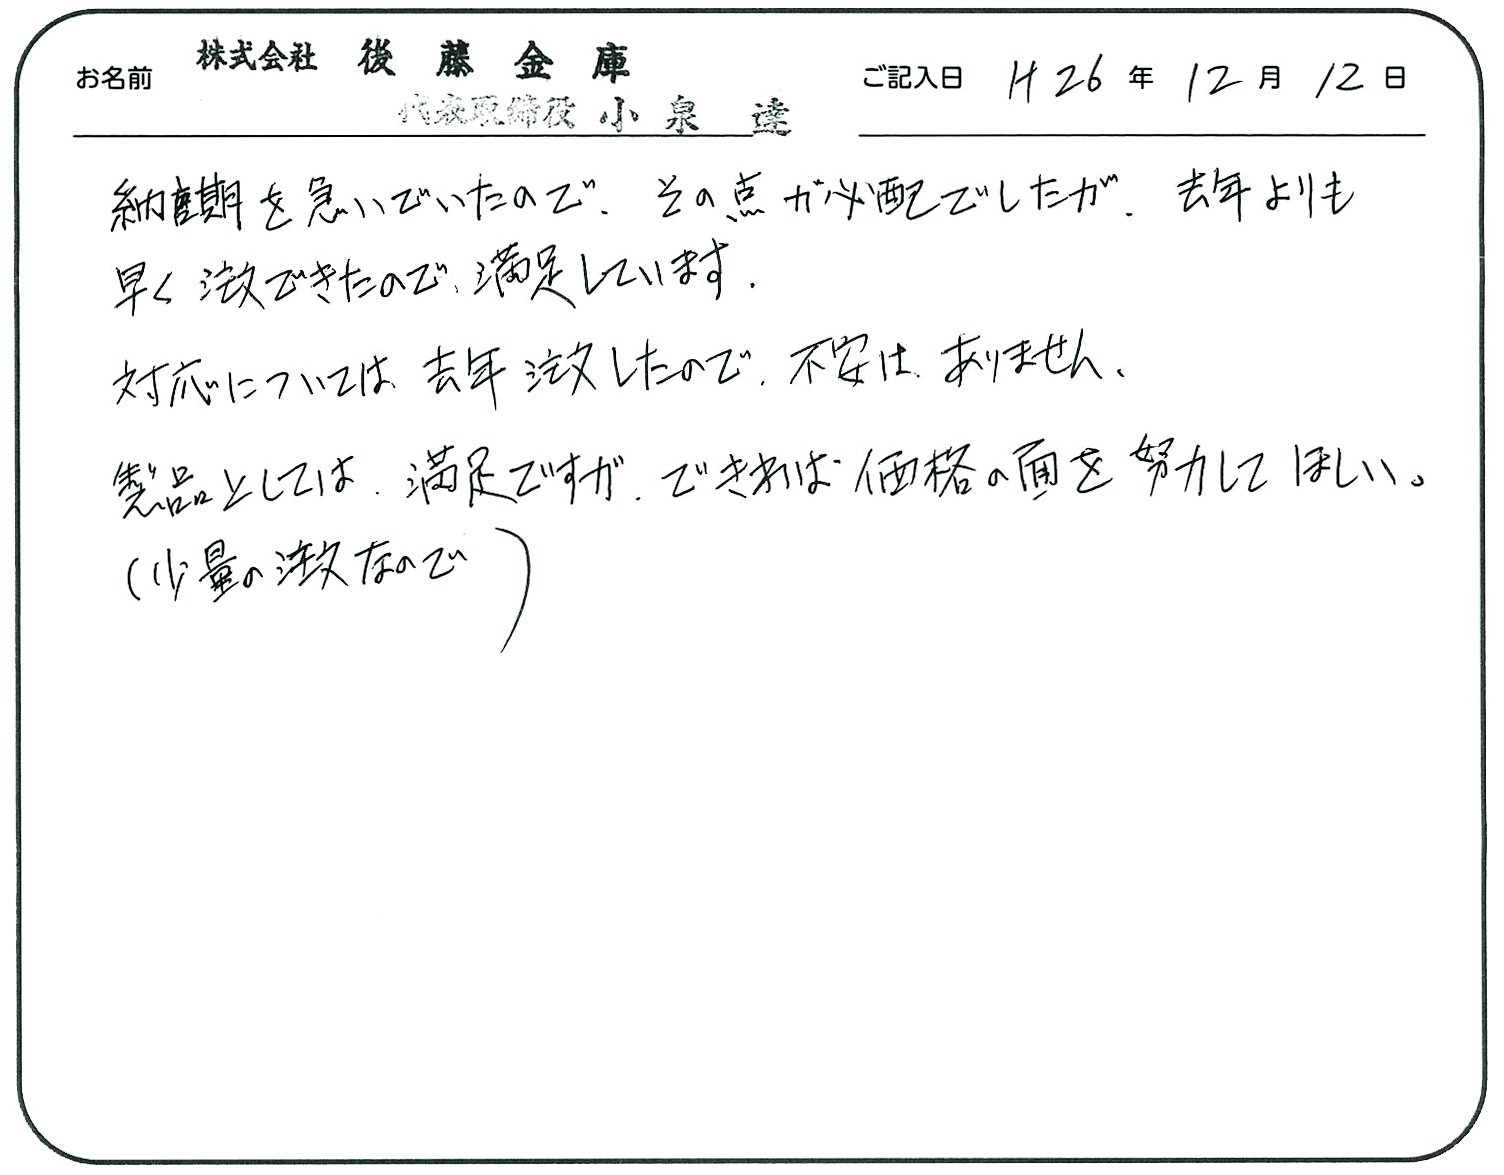 お名前 株式会社 後藤金庫 ご記入日 H26年12月12日
代表取締役 小泉 達
納期を急いでいたので、その点が心配でしたが、去年よりも
早く注文できたので、満足しています.
対応については、去年注文したので、不安は、ありません、
製品としては、満足ですが、できれば価格の面を努力してほしい。
(少量の注文なので)